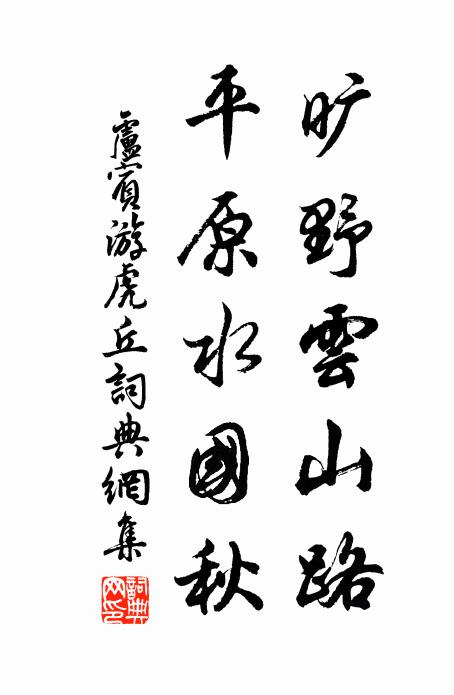 旷野雲山路
平原水國秋
盧賓游虎丘詞典網集
詞典网印